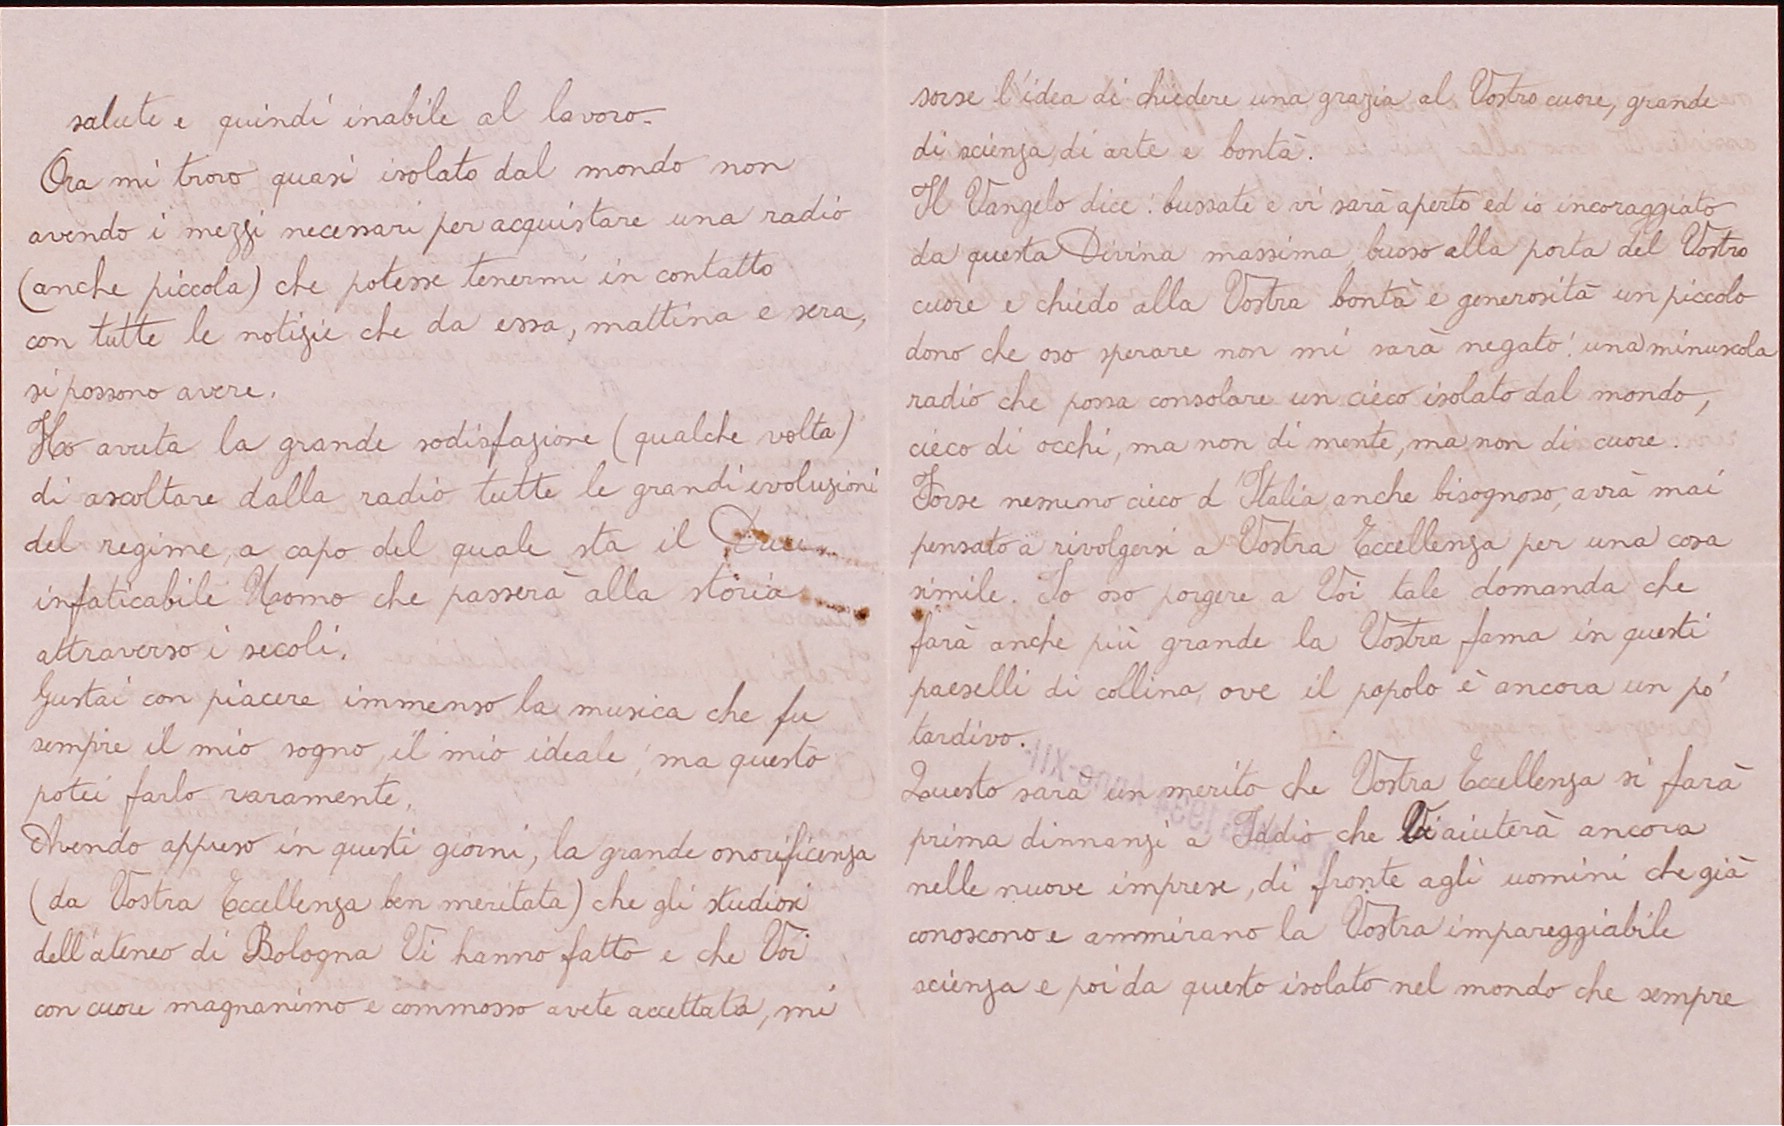 salute e quindi inabile al lavoro.
Ora mi trovo quasi isolato dal mondo non
avendo i mezzi necessari per acquistare una radio
(anche piccola) che potesse tenermi in contatto
con tutte le notizie che da essa, mattina e sera,
si possono avere.
Ho avuta la grande sodisfazione (qualche volta)
di ascoltare dalla radio tutte le grandi evoluzioni
del regime, a capo del quale sta il Duce
infaticabile Uomo che passerà alla storia
attraverso i secoli.
Gustai con piacere immenso la musica che fu
sempre il mio sogno, il mio ideale; ma questo
potei farlo raramente.
Avendo appreso in questi giorni, la grande onorificenza
(da Vostra Eccellenza ben meritata) che gli studiosi
dell'ateneo di Bologna Vi hanno fatto e che Voi
con cuore magnanimo e commosso avete accettata, mi
sorse l'idea di chiedere una grazia al Vostro cuore, grande
di scienza, di arte e bontà.
Il Vangelo dice: bussate e vi sarà aperto ed io incoraggiato
da questa Divina massima, busso alla porta del Vostro
cuore e chiedo alla Vostra bontà e generosità un piccolo
dono che oso sperare non mi sarà negato: una minuscola
radio che possa consolare un cieco isolato dal mondo,
cieco di occhi, ma non di mente, ma non di cuore.
Forse nessuno cieco d'Italia, anche bisognoso, avrà mai
pensato a rivolgersi a Vostra Eccellenza per una cosa
simile. Io oso porgere a Voi tale domanda che
farà anche più grande la Vostra fama in questi
paeselli di collina, ove il popolo è ancora un po'
tardivo.
Questo sarà un merito che Vostra Eccellenza si farà
prima dinnanzi a Iddio che Vi aiuterà ancora
nelle nuove imprese, di fronte agli uomini che già
conoscono e ammirano la Vostra impareggiabile
scienza e poi da questo isolato nel mondo che sempre